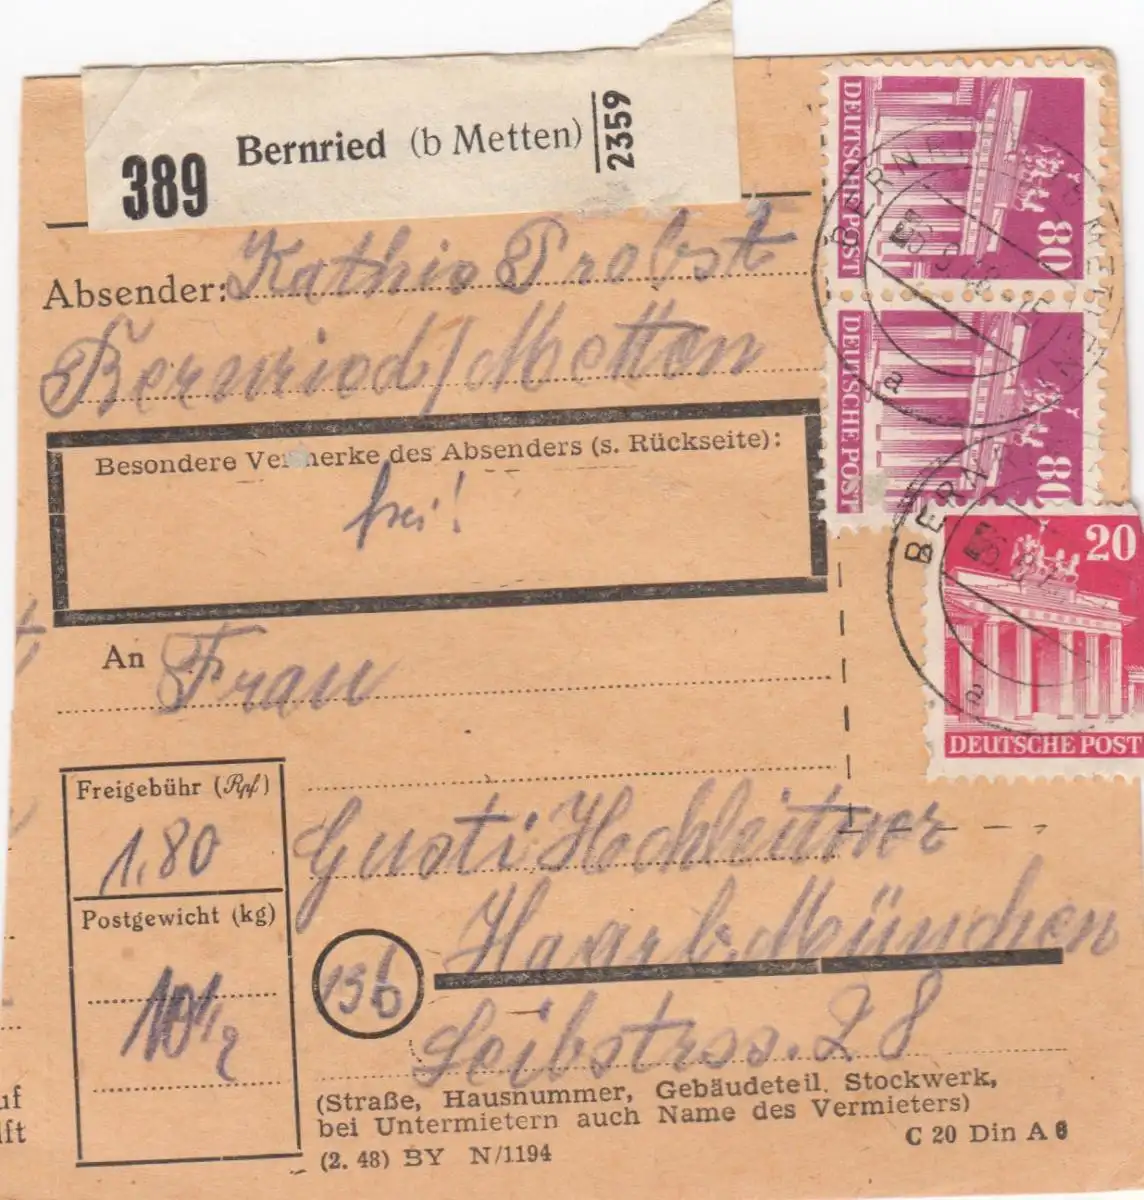 389 Bernried (b Metten) 2359
Absender: Kathie Probst
Bernried/Metten
Besondere Vermerke des Absenders (s. Rückseite):
frei!
An Frau
Freigebühr (Rpf)
1,80
Gusti Hochleitner
Postgewicht (kg)
Haar b. München
10 1/2
13b
Leibstrss. 28
(Straße, Hausnummer, Gebäudeteil, Stockwerk,
bei Untermietern auch Name des Vermieters)
(2. 48) BY N/1194
C 20 Din A 6
DEUTSCHE POST 80
DEUTSCHE POST 80
20
DEUTSCHE POST